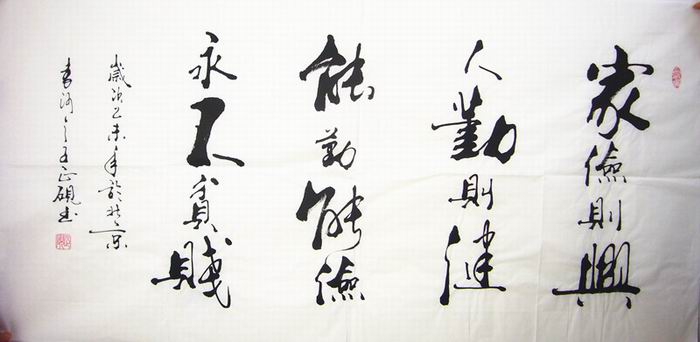 家儉則興
人勤則健
能勤能儉
永不貧賤
歲次乙未年於北京
書河之子正硯書